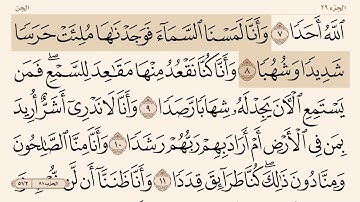 الجزء ٢٩ الجن
اللَّهُ أَحَدًا ٧ وَأَنَّا لَمَسْنَا السَّمَاءَ فَوَجَدْنَاهَا مُلِئَتْ حَرَسًا
شَدِيدًا وَشُهُبًا ٨ وَأَنَّا كُنَّا نَقْعُدُ مِنْهَا مَقَاعِدَ لِلسَّمْعِ ۖ فَمَن
يَسْتَمِعِ الْآنَ يَجِدْ لَهُ شِهَابًا رَّصَدًا ٩ وَأَنَّا لَا نَدْرِي أَشَرٌّ أُرِيدَ
بِمَن فِي الْأَرْضِ أَمْ أَرَادَ بِهِمْ رَبُّهُمْ رَشَدًا ١٠ وَأَنَّا مِنَّا الصَّالِحُونَ
وَمِنَّا دُونَ ذَٰلِكَ ۖ كُنَّا طَرَائِقَ قِدَدًا ١١ وَأَنَّا ظَنَنَّا أَن لَّن
٥٧٢